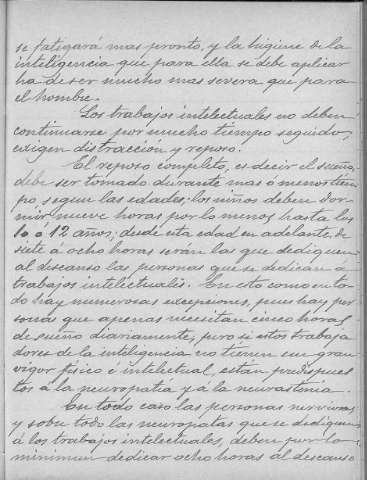 se fatigará mas pronto, y la higiene de la
inteligencia que para ella se debe aplicar
ha de ser mucho mas severa que para
el hombre.
Los trabajos intelectuales no deben
continuarse por mucho tiempo seguido,
exigen distracción y reposo.
El reposo completo, es decir el sueño,
debe ser tomado durante mas ó menos tiem-
po, segun las edades; los niños deben dor-
mir nueve horas por lo menos hasta los
10 ó 12 años; desde esta edad en adelante, de
siete á ocho horas serán las que dediquen
al descanso las personas que se dedican a
trabajos intelectuales. En esto como en to-
do hay numerosas excepciones, pues hay per
sonas que apenas necesitan cinco horas
de sueño diariamente, pero si estos trabaja
dores de la inteligencia no tienen un gran
vigor fisico é intelectual, están predispues
tos á la neuropatia y á la neurastenia.
En todo caso las personas nerviosas
y sobre todo las neuropatas que se dediquen
á los trabajos intelectuales, deben por lo
minimum dedicar ocho horas al descanso